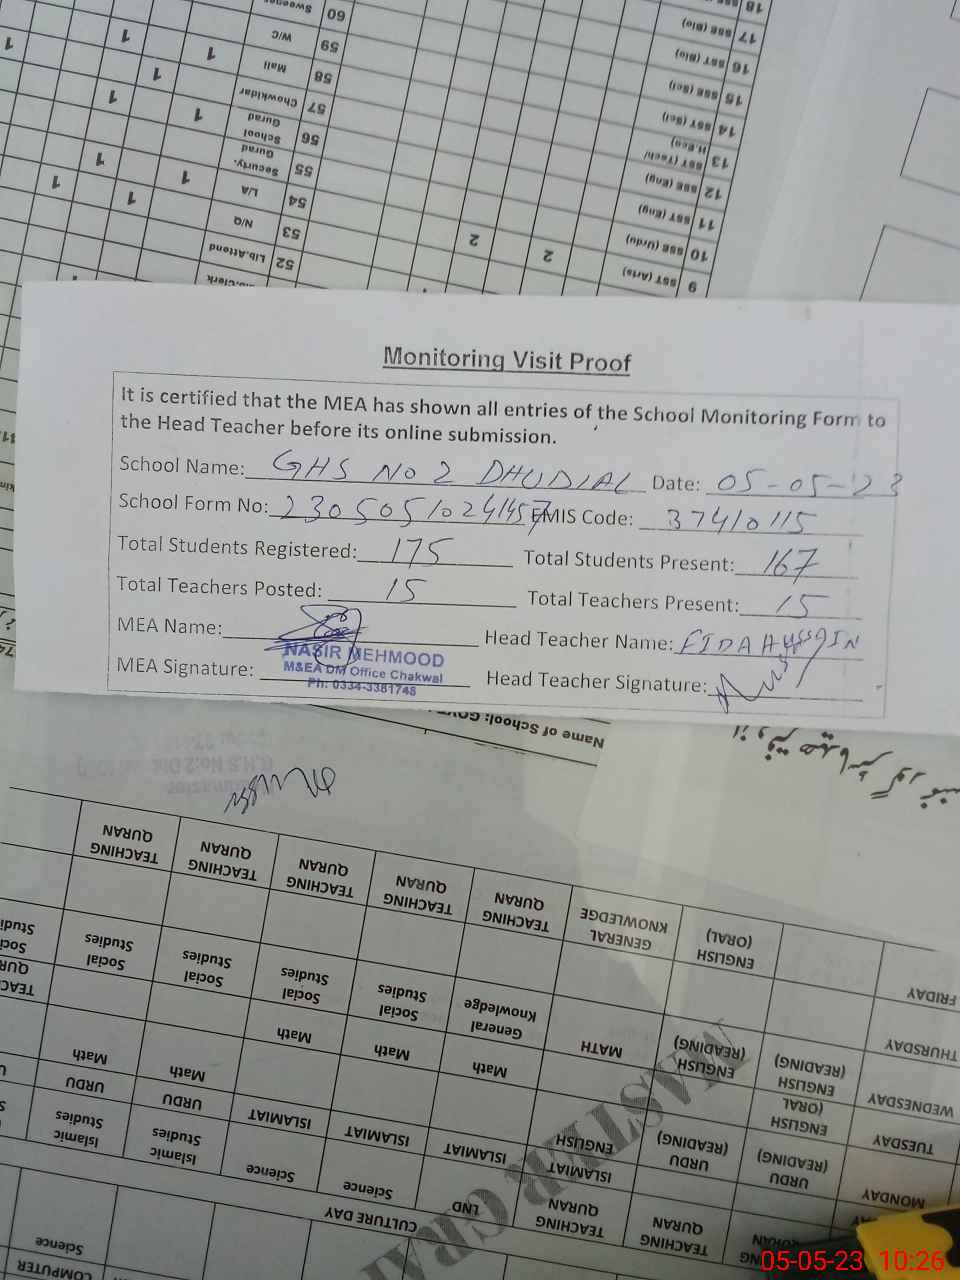 60 Sweeper
59 W/C
58 Mali
57 Chowkidar
56 School Gurad
55 Securty. Gurad
54 L/A
53 N/Q
52 Lib.Attend
18
17 SSE (Bio)
16 SST (Bio)
15 SSE (Sci)
14 SST (Sci)
13 SST (Tech/ H.Eco)
12 SSE (Eng)
11 SST (Eng)
10 SSE (Urdu)
9 SST (Arts)
1 1 1
1
1 1
1 1
1 1
2 2
Monitoring Visit Proof
It is certified that the MEA has shown all entries of the School Monitoring Form to
the Head Teacher before its online submission.
School Name: GHS NO 2 DHUDIAL Date: 05-05-23
School Form No: 230505102414457 EMIS Code: 37410115
Total Students Registered: 175 Total Students Present: 167
Total Teachers Posted: 15 Total Teachers Present: 15
MEA Name: Head Teacher Name: FIDA HUSSAIN
NASIR MEHMOOD
M&EA DM Office Chakwal
Ph: 0334-3381748
MEA Signature: Head Teacher Signature:
Name of School:
COMPUTER
Science
CULTURE DAY
MONDAY
TEACHING QURAN
TEACHING QURAN
LND
Science
Science
URDU (READING)
URDU (READING)
ISLAMIAT
ENGLISH
ISLAMIAT
ISLAMIAT
ISLAMIAT
Islamic Studies
Islamic Studies
TUESDAY
ENGLISH (ORAL
URDU
URDU
WEDNESDAY
ENGLISH (READING)
ENGLISH (READING)
MATH
Math
Math
Math
Math
Math
THURSDAY
General Knowledge
Social Studies
Social Studies
Social Studies
Social Studies
FRIDAY
ENGLISH (ORAL)
GENERAL KNOWLEDGE
TEACHING QURAN
TEACHING QURAN
TEACHING QURAN
TEACHING QURAN
TEACHING QURAN
05-05-23 10:26